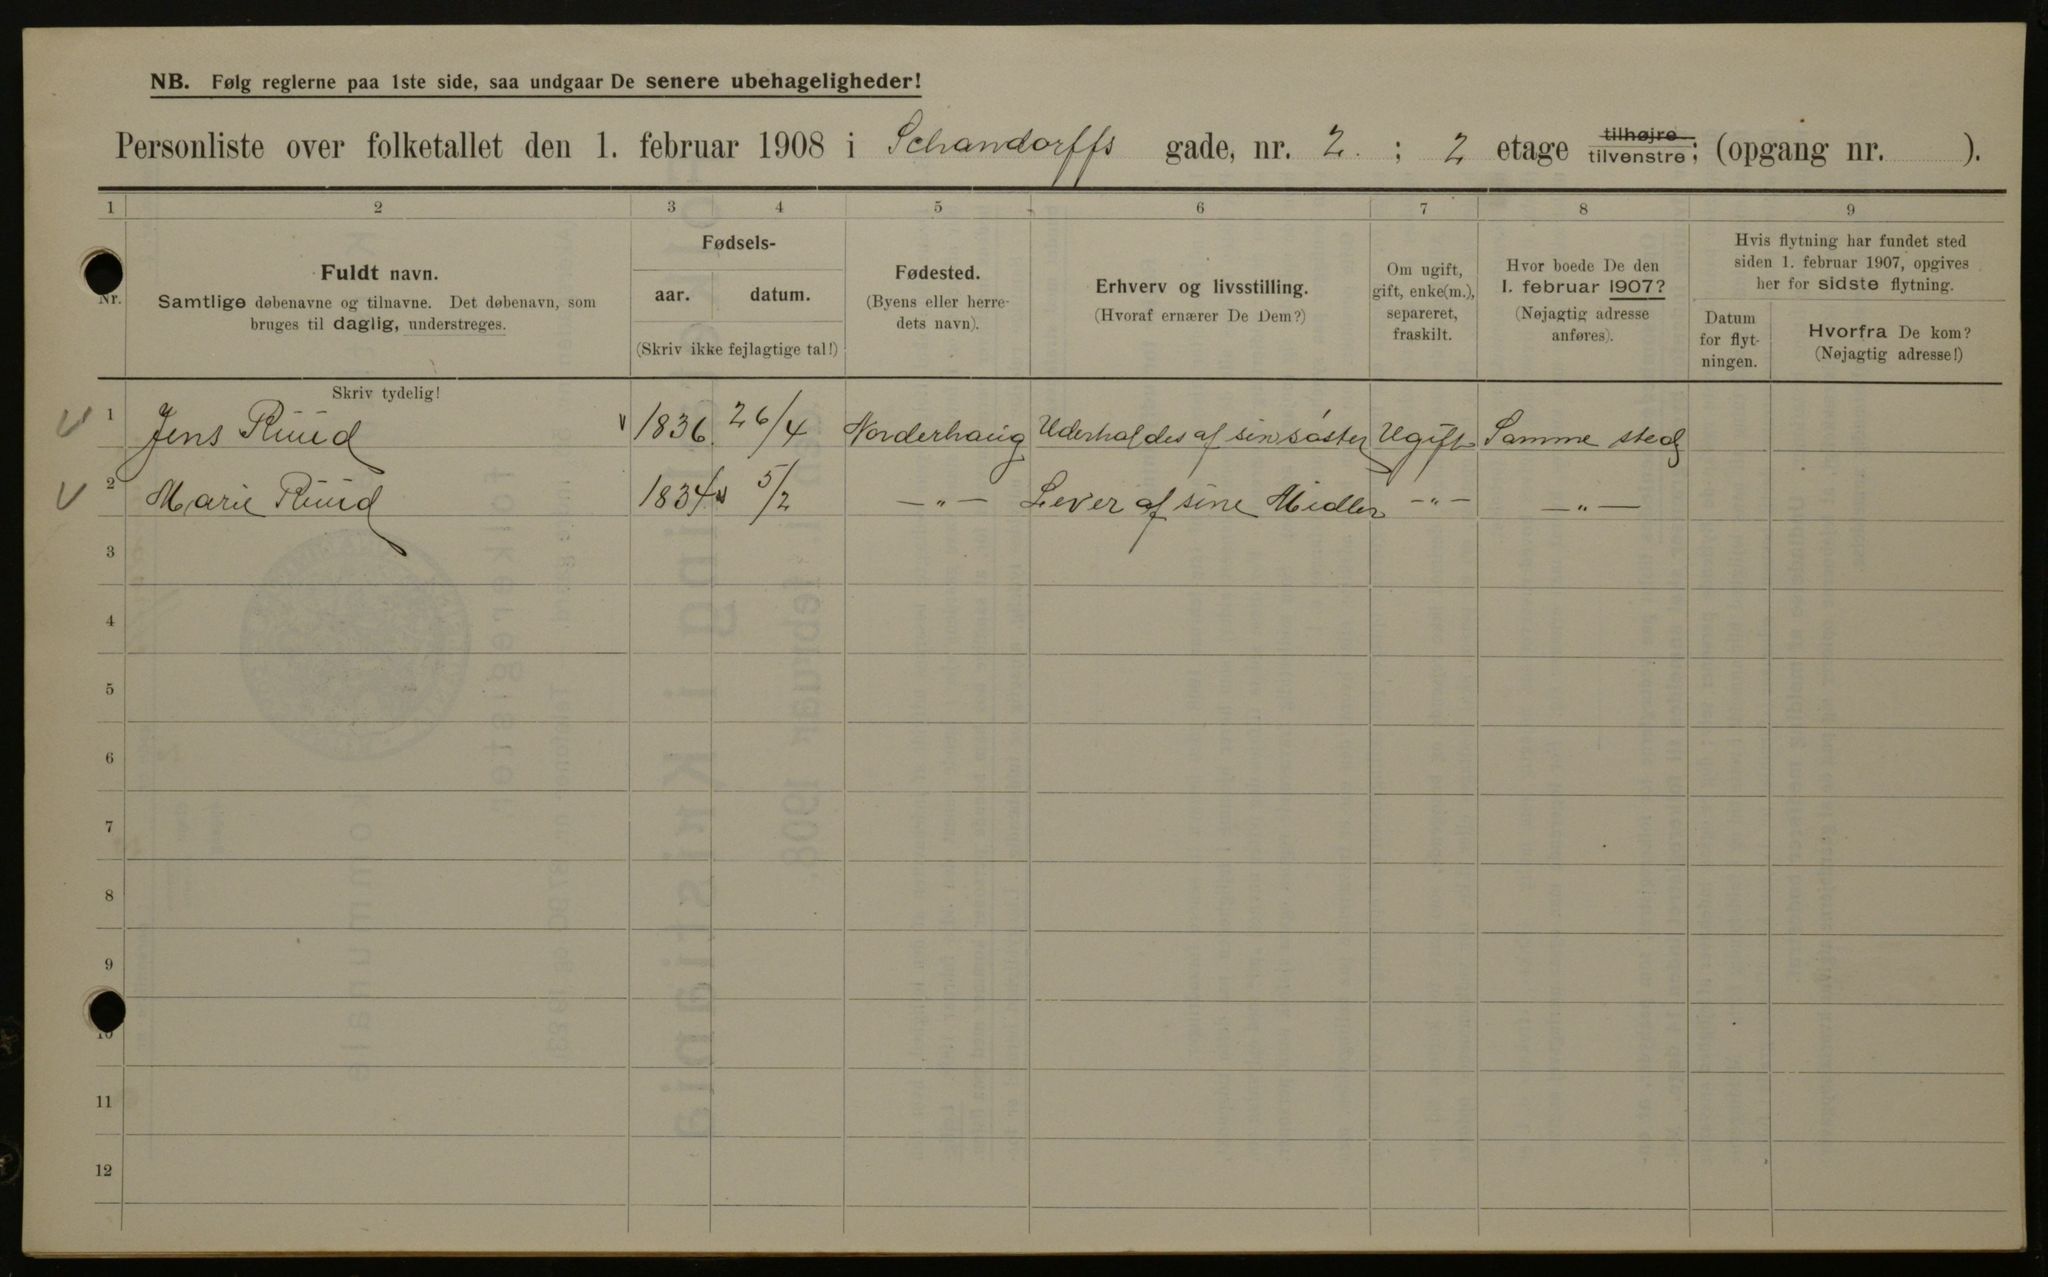 NB. Følg reglerne paa 1ste side, saa undgaar De senere ubehageligheder!
Personliste over folketallet den 1. februar 1908 i Schandorffs gade, nr. 2. ; 2 etage tilhøjre tilvenstre; (opgang nr. ).
1 2 3 4 5 6 7 8 9
Nr.
Fuldt navn.
Samtlige døbenavne og tilnavne. Det døbenavn, som
bruges til daglig, understreges.
Fødsels-
aar. datum.
(Skriv ikke fejlagtige tal!)
Fødested.
(Byens eller herre-
dets navn).
Erhverv og livsstilling.
(Hvoraf ernærer De Dem?)
Om ugift,
gift, enke(m.),
separeret,
fraskilt.
Hvor boede De den
1. februar 1907?
(Nøjagtig adresse
anføres).
Hvis flytning har fundet sted
siden 1. februar 1907, opgives
her for sidste flytning.
Datum
for flyt-
ningen.
Hvorfra De kom?
(Nøjagtig adresse!)
Skriv tydelig!
1 Jens Ruud 1836. 26/4 Norderhaug Uderholdes af sin søster Ugift Samme sted
2 Marie Ruud 1834 5/2 —„— Lever af sine Midler —„— —„—
3
4
5
6
7
8
9
10
11
12